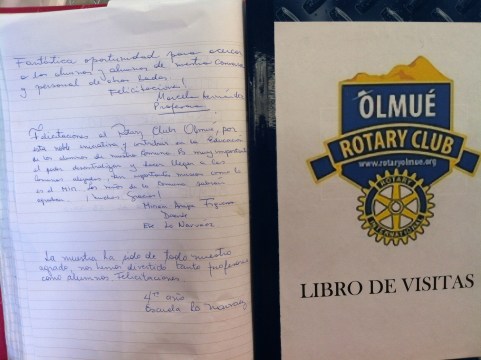 Fantástica oportunidad para acercar
a los chicos y alumnos de nuestra comuna
y personal de otros lados
Felicitaciones!
Marcela Hernández
Profesora
Felicitaciones al Rotary Club Olmué, por
esta noble iniciativa y contribuir en la Educación
de los alumnos de nuestra Comuna. Es muy importante
el poder descentralizar y hacer llegar a las
comunas alejadas, tan importante museo como lo
es el MIM. Los niños de la comuna sabrán
¡Muchas Gracias!
Miriam Araya
Esc. La Narvaez
La muestra ha sido de todo nuestro
agrado, nos hemos divertido tanto profesores
como alumnos. Felicitaciones.
4to año
Escuela La Narvaez
OLMUÉ
ROTARY CLUB
www.rotaryolmue.org
ROTARY
INTERNATIONAL
LIBRO DE VISITAS